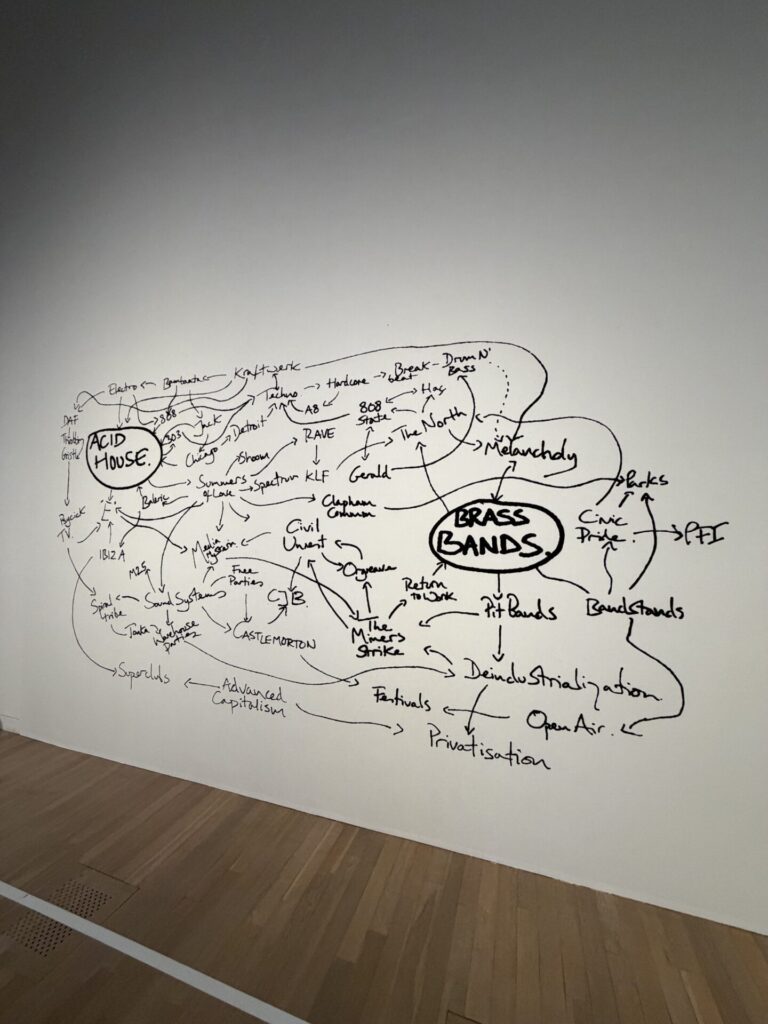 Kraftwerk
Bambaataa
Electro
DAF
Throbbing
Gristle
808
303
Jack
Techno
Hardcore
Break
beat
Drum N'
Bass
A8
808
State
Hac
ACID
HOUSE.
Chicago
Detroit
RAVE
The North
Melancholy
Shoom
Summers
of Love
Spectrum
KLF
Gerald
Clapham
Common
Parks
Balearic
'E'.
Psychick
TV.
IBIZA
M25
Media
Hysteria
Civil
Unrest
BRASS
BANDS.
Civic
Pride.
PFI
Orgreave
Free
Parties
CJB.
Return
to Work
Spiral
Tribe
Sound Systems
Tonka
Warehouse
Parties
CASTLEMORTON
The
Miners
Strike
Pit Bands
Bandstands
Superclubs
Advanced
Capitalism
Deindustrialization
Festivals
Open Air.
Privatisation